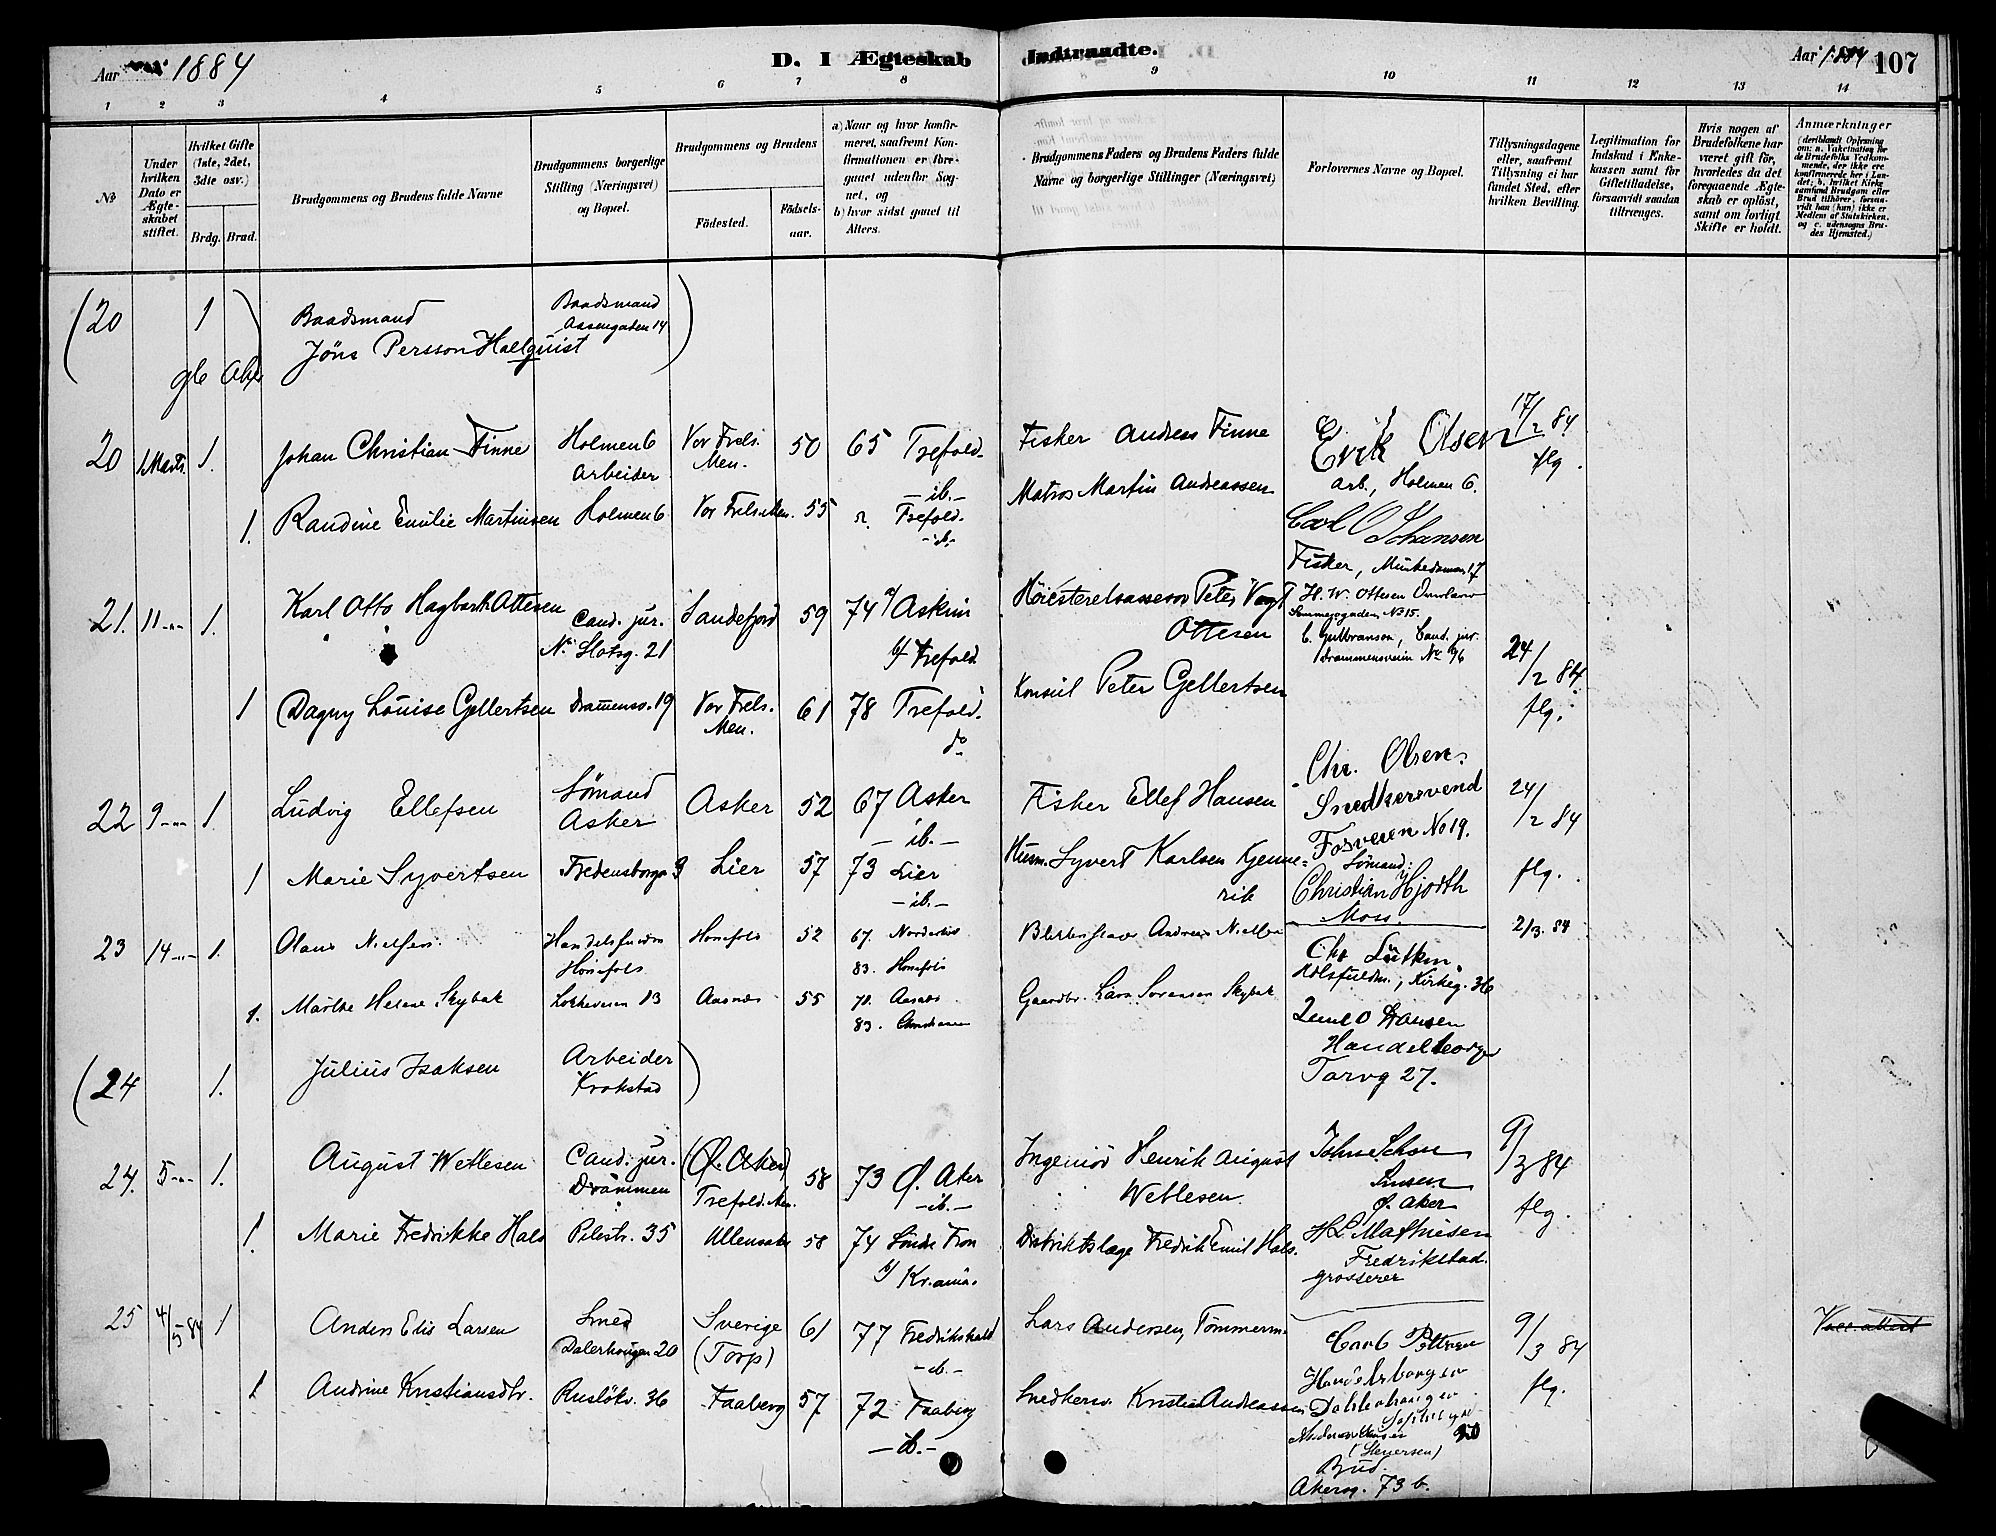 Aar 1884
D. I Ægteskab Indtraadte.
Aar 1884 107
1 2 3 4 5 6 7 8 9 10 11 12 13 14
No
Under hvilken Dato er Ægteskabet stiftet.
Hvilket Gifte (1ste, 2det, 3die osv.)
Brdg. Brud.
Brudgommens og Brudens fulde Navne
Brudgommens borgerlige Stilling (Næringsvei) og Bopæl.
Brudgommens og Brudens
Födested.
Födselsaar.
a) Naar og hvor konfirmeret, saafremt Konfirmationen er foregaaet udenfor Sognet, og
b) hvor sidst gaaet til Alters.
Brudgommens Faders og Brudens Faders fulde Navne og borgerlige Stillinger (Næringsvei)
Forlovernes Navne og Bopæl.
Tillysningsdagene eller, saafremt Tillysning ei har fundet Sted, efter hvilken Bevilling.
Legitimation for Indskud i Enkekassen samt for Giftetilladelse, forsaavidt saadan tiltrænges.
Hvis nogen af Brudefolkene har været gift för, hvorledes da det foregaaende Ægteskab er oplöst, samt om lovligt Skifte er holdt.
Anmærkninger
(deriblandt Oplysning om: a. Vakcination for de Brudefolks Vedkommende, der ikke ere konfirmerede her i Landet; b. hvilket Kirkesamfund Brudgom eller Brud tilhörer, forsaavidt han (hun) ikke er Medlem af Statskirken, og c. udensogns Brudes Hjemsted.)
(20 1 Baadsmand Baadsmand
Aasengaden 14
Jöns Persson Hallquist )
20 1 Marts 1. Johan Christian Finne Holmen 6 Vor Frels. 50 65 Trefold. Fisker Andreas Finne Erik Olsen 17/2 84
Arbeider Men. - ib. - arb., Holmen 6. flg.
1. Randine Emilie Martinsen Holmen 6 Vor Frels. Men. 55 Trefold. Matros Martin Andreassen Carl O Johansen
- ib. - Fisker, Munkedamsv. 17
21. 11 1. Karl Otto Hagbarth Ottesen Cand. jur. Sandefjord 59 74 a/ Askim Höiesteretsassessor Peter Vogt H. W. Ottesen
N. Slotsg. 21 b/ Trefold. Ottesen No 15.
C. Gulbranson, Cand. jur.
Drammensveien No 96 24/2 84
1 Dagny Louise Gellertsen Drammensv. 19 Vor Frels. 61 78 Trefold. Konsul Peter Gellertsen flg.
Men. do
22 9 1. Ludvig Ellefsen Sömand Asker 52 67 Asker Fisker Ellef Hansen Chr. Olsen. 24/2 84
Asker - ib. - Snedkersvend
Fosveien No 19.
1 Marie Syvertsen Fredensborgv. 9 Lier 57 73 Lier Husm. Syvert Karlsen Kjenne= Sömand: flg.
- ib. - rik Christian Hjorth
Moss.
23 14 1. Olaus Nielsen Hönefos 52 67. Norderhov Andreas Nielsen 2/3. 84
Hönefos 83. Hönefos Chr Lütken.
1. Marthe Helene Skybak Lökkeveien 13 Aasnes 55 70. Aasnes Gaardbr. Lars Sorensen Skybak Kirkeg. 36
83.
Hansen
(24 1. Julius Isaksen Arbeider ) Handelsborger
Krokstad Torvg 27.
24. 5 1. August Wetlesen Cand. jur. (Ø. Aker) 58 73 Ø. Aker Ingeniör Henrik August 9/3 84
Drammen Trefold. Men. - ib. - Wetlesen Ø. Aker flg.
1. Marie Fredrikke Hals Pilestr. 35 Ullensaker 58 74 Söndre Fron Distriktslæge Fredrik Emil Hals. H L Mathiesen
b/ Kr.ania. Fredrikstad.
grosserer
25 4/5 84 1 Anders Elis Larsen Smed Sverige 61 77 Fredrikshald Lars Andersen, Tömmerm. Carl Pettersen 9/3 84 Vacc. attest
Dalerhougen 20 (Torp) - ib. - Handelsborger
1 Andrine Kristiansdtr. Ruslökv. 36 Faaberg 57 72 Faaberg Snedkersv. Kristian Andreassen flg.
- ib. - (Steversen)
Bud.
Akersg. 73 b.